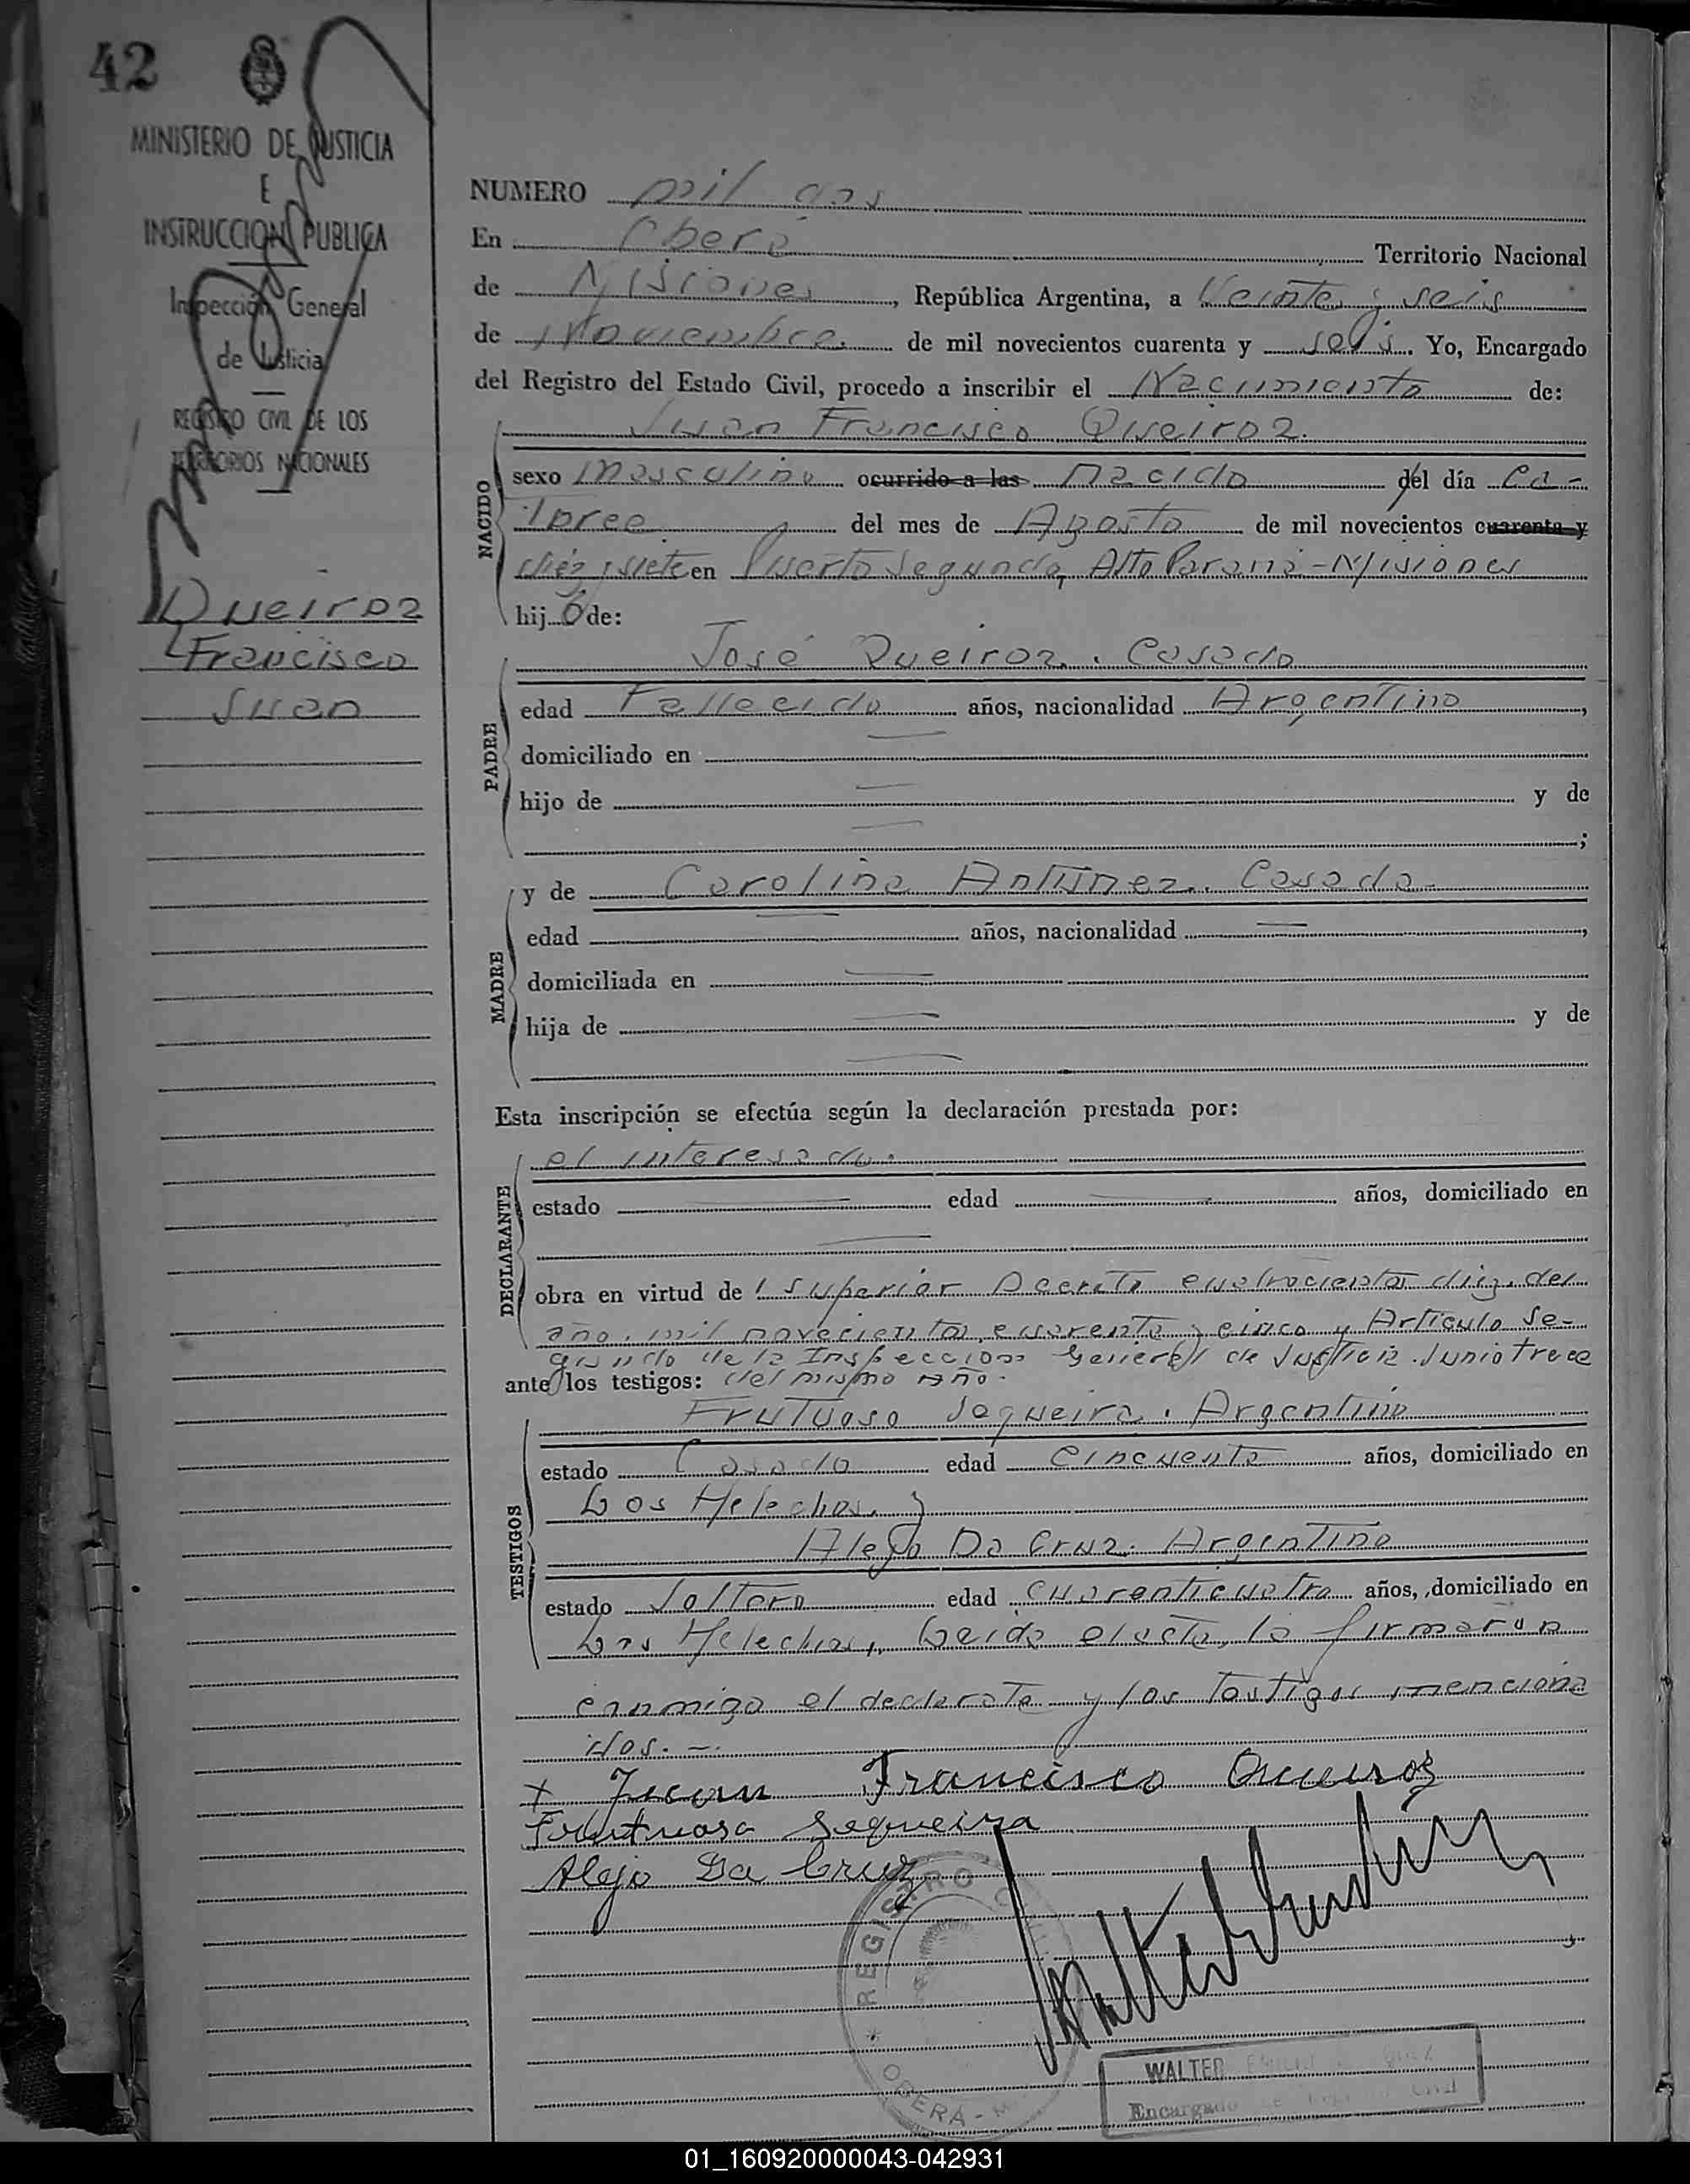 42
MINISTERIO DE JUSTICIA
E
INSTRUCCION PUBLICA
Inspección General
de Justicia
REGISTRO CIVIL DE LOS
TERRITORIOS NACIONALES
Queiroz
Francisco
Juan
NUMERO mil dos
En Oberá Territorio Nacional
de Misiones, República Argentina, a Veinte y seis
de Noviembre de mil novecientos cuarenta y seis. Yo, Encargado
del Registro del Estado Civil, procedo a inscribir el Nacimiento de:
Juan Francisco Queiroz.
NACIDO
sexo masculino ocurrido a las nacido del día Ca-
torce del mes de Agosto de mil novecientos cuarenta y
diéz y siete en Puerto Segundo, Alto Paraná - Misiones
hijo de:
PADRE
José Queiroz. Casado
edad Fallecido años, nacionalidad Argentino,
domiciliado en
hijo de y de
;
MADRE
y de Carolina Antunez. Casada-
edad años, nacionalidad ,
domiciliada en
hija de y de
Esta inscripción se efectúa según la declaración prestada por:
DECLARANTE
el interesado.
estado edad años, domiciliado en
obra en virtud del Superior Decreto cuatrocientos diez del
año mil novecientos cuarenta y cinco y Articulo Se-
gundo de la Inspeccion General de Justicia. Junio trece
ante los testigos: del mismo año.
TESTIGOS
Frutuoso Seqveira. Argentino
estado Casado edad Cincuenta años, domiciliado en
Los Helechos, y
Alejo Da Cruz. Argentino
estado Soltero edad Cuarenticuatro años, domiciliado en
Los Helechos, Leida el acta, la firmaron
conmigo el declarate y los Testigos menciona
dos. -
+ Juan Francisco Queiroz
Frutuoso Seqveira
Alejo Da Cruz
REGISTRO
OBERA - M
WALTER
Encargado
01_160920000043-042931